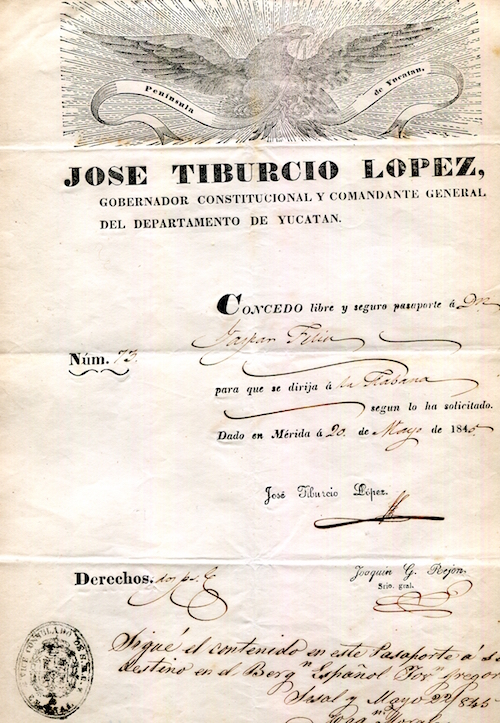 Península de Yucatan.
JOSE TIBURCIO LOPEZ,
GOBERNADOR CONSTITUCIONAL Y COMANDANTE GENERAL
DEL DEPARTAMENTO DE YUCATAN.
CONCEDO libre y seguro pasaporte á Dn
Gaspar Feliu
Núm. 73.
para que se dirija á la Habana
segun lo ha solicitado.
Dado en Mérida á 20. de Mayo de 1845
José Tiburcio López.
Derechos. dos ps.
Joaquin G. Rejon,
Srio. gral.
Sigue el contenido en este Pasaporte á su
destino en el Bergn Español
Sisal y Mayo 22/845